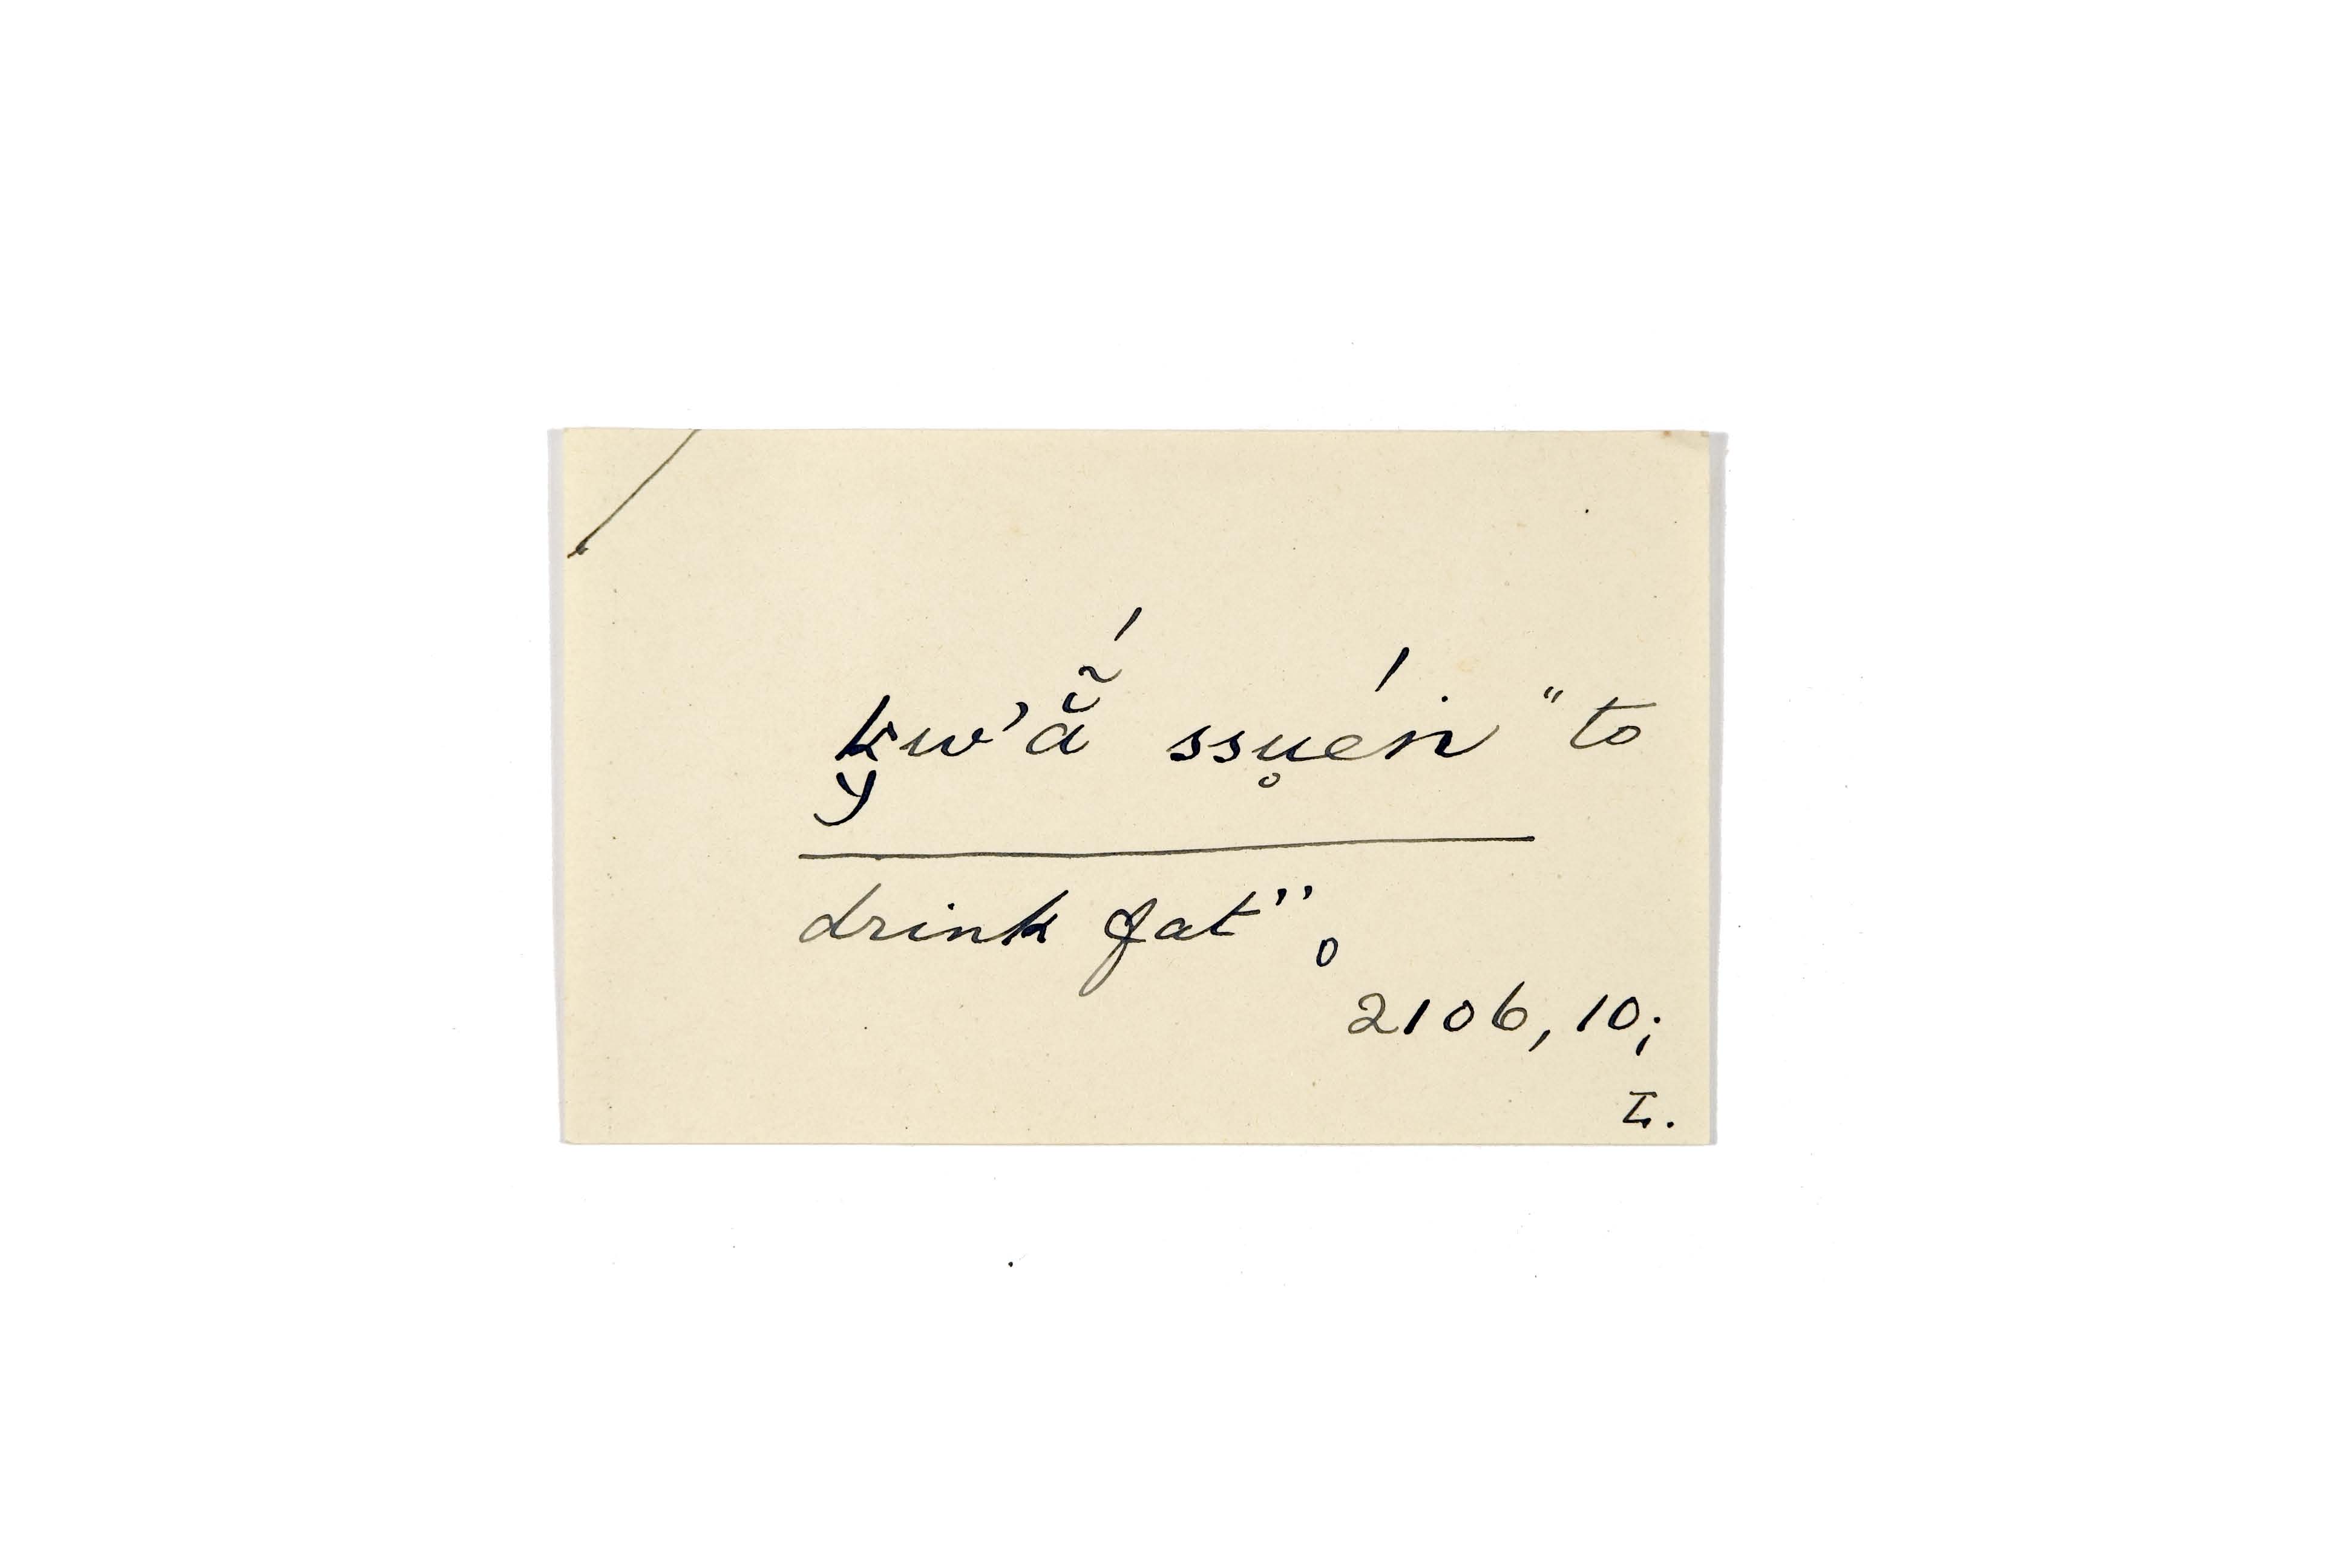 kw'ằ̃́ ssu̥éṅ "to
y
drink fat".
2106, 10;
I.